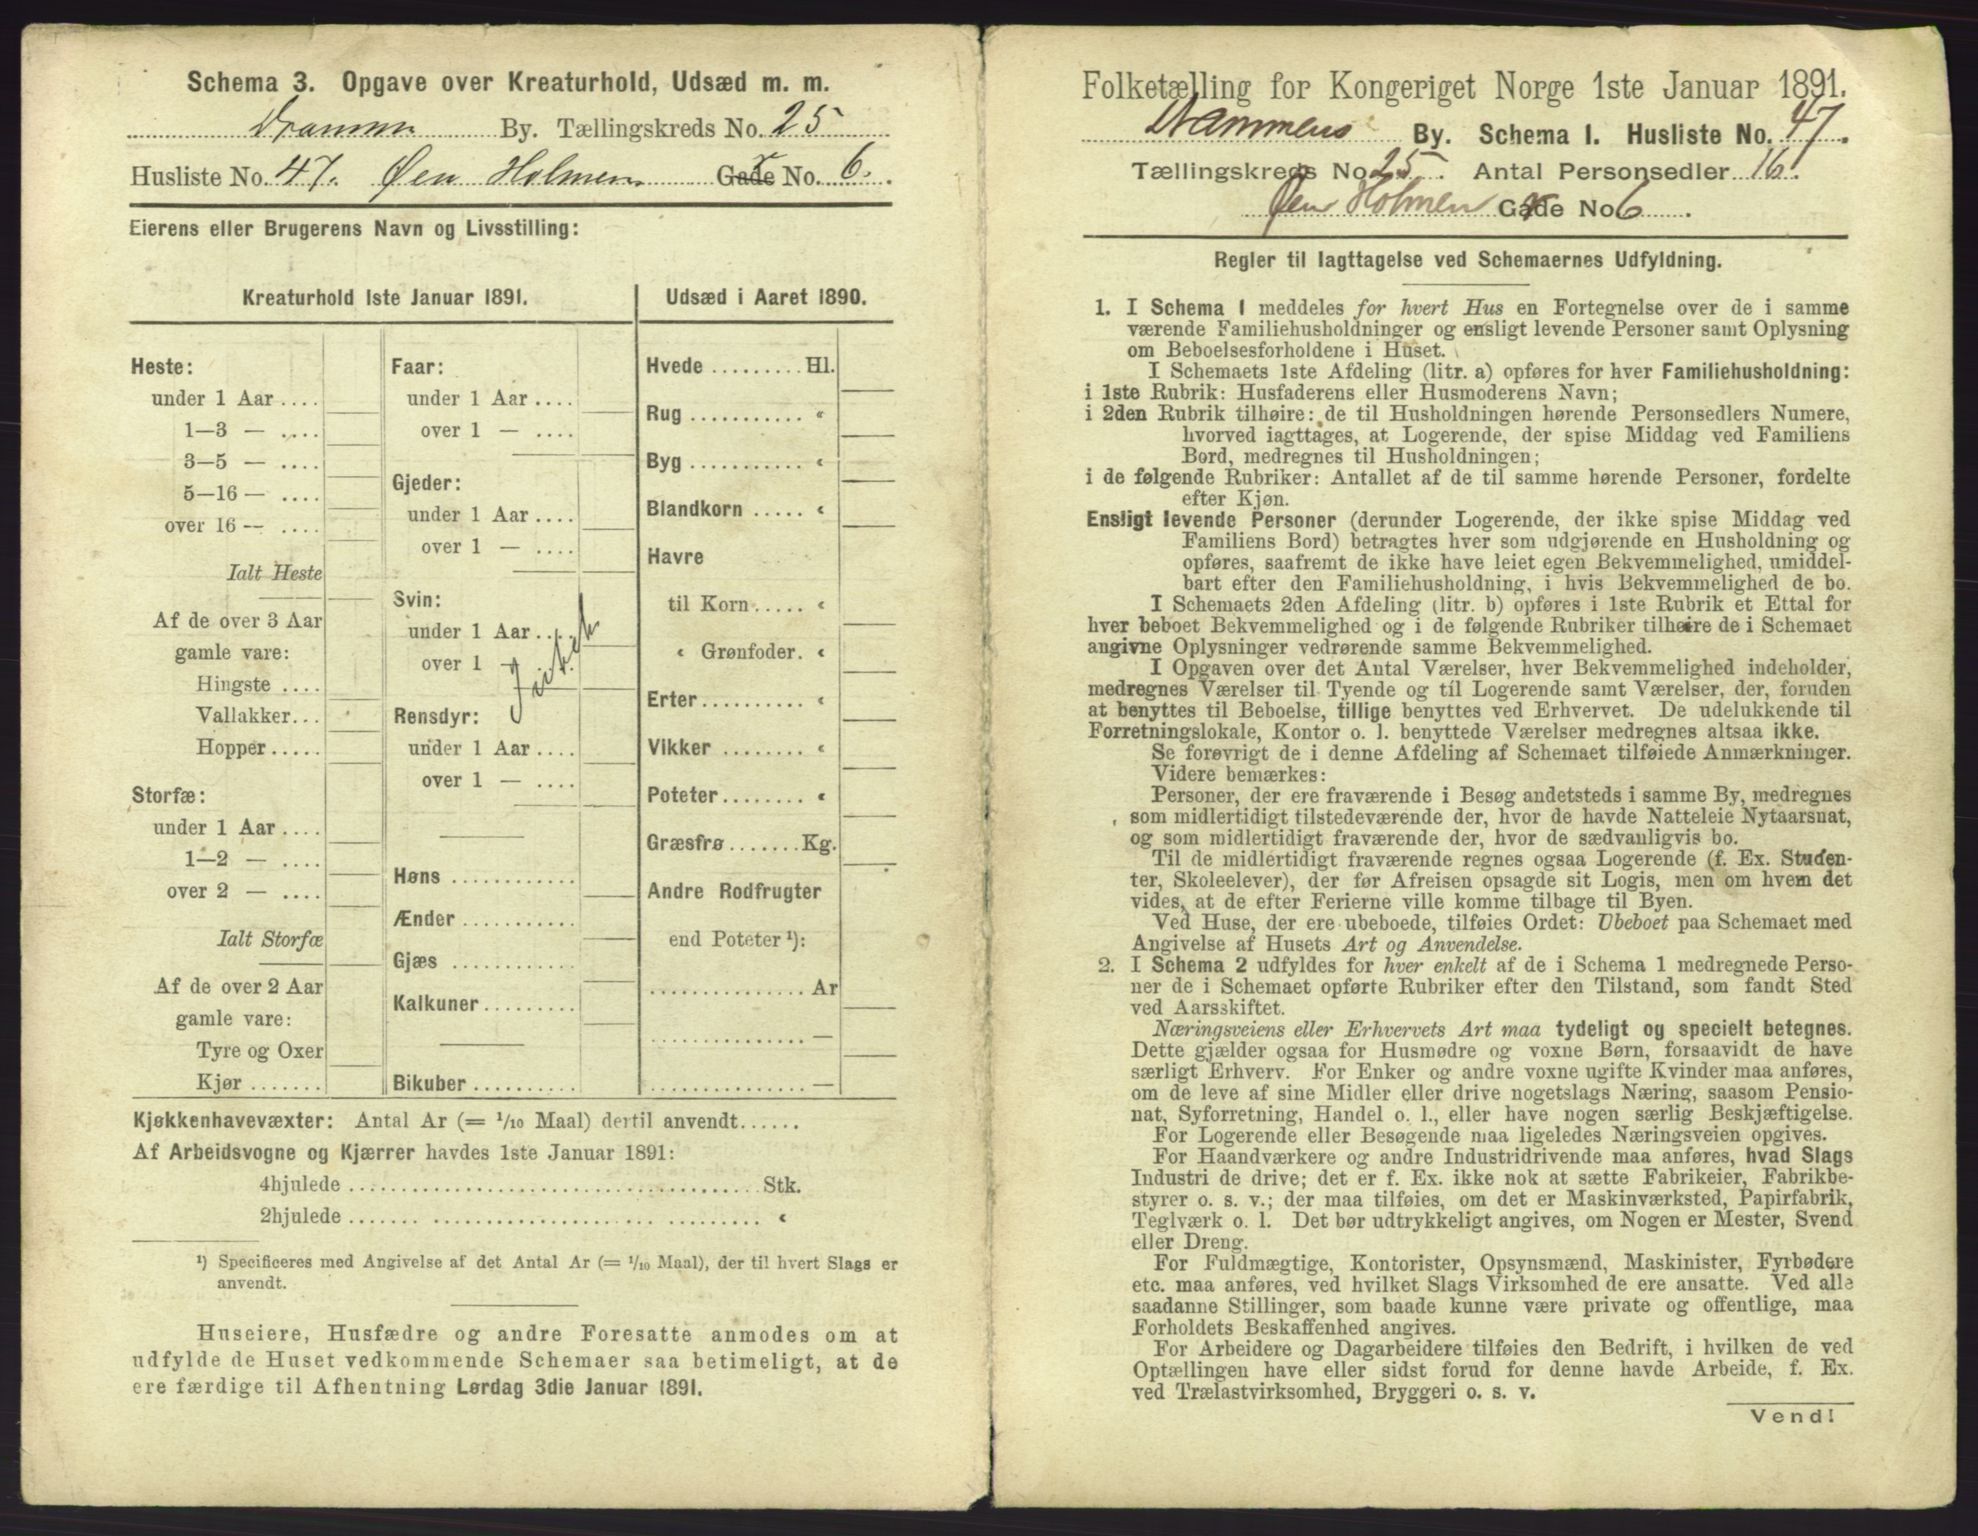 Schema 3. Opgave over Kreaturhold, Udsæd m. m.
Drammen By. Tællingskreds No. 25
Husliste No. 47. Øen Holmen Gade No. 6.
Eierens eller Brugerens Navn og Livsstilling:
Kreaturhold 1ste Januar 1891.
Heste:
under 1 Aar ....
1—3 — ....
3—5 — ....
5—16 — ....
over 16 — ....
Ialt Heste
Af de over 3 Aar
gamle vare:
Hingste ....
Vallakker...
Hopper.....
Storfæ:
under 1 Aar ....
1—2 — ....
over 2 — ....
Ialt Storfæ
Af de over 2 Aar
gamle vare:
Tyre og Oxer
Kjør.......
Faar:
under 1 Aar ....
over 1 — ....
Gjeder:
under 1 Aar ....
over 1 — ....
Svin:
under 1 Aar....
over 1 — ....
Rensdyr:
under 1 Aar ....
over 1 — ....
Høns ............
Ænder ............
Gjæs ............
Kalkuner .........
Bikuber ..........
Udsæd i Aaret 1890.
Hvede ......... Hl.
Rug ........... «
Byg ........... «
Blandkorn ..... «
Havre
til Korn..... «
« Grønfoder. «
Erter.......... «
Vikker ........ «
Poteter........ «
Græsfrø....... Kg.
Andre Rodfrugter
end Poteter ¹):
............... Ar
............... —
............... —
Kjøkkenhavevæxter: Antal Ar (= 1/10 Maal) dertil anvendt......
Af Arbeidsvogne og Kjærrer havdes 1ste Januar 1891:
4hjulede ........................................ Stk.
2hjulede ........................................ «
¹) Specificeres med Angivelse af det Antal Ar (= 1/10 Maal), der til hvert Slags er
anvendt.
Huseiere, Husfædre og andre Foresatte anmodes om at
udfylde de Huset vedkommende Schemaer saa betimeligt, at de
ere færdige til Afhentning Lørdag 3die Januar 1891.
Folketælling for Kongeriget Norge 1ste Januar 1891.
Drammens By. Schema 1. Husliste No. 47.
Tællingskreds No. 25. Antal Personsedler 16.
Øen Holmen Gade No 6.
Regler til Iagttagelse ved Schemaernes Udfyldning.
1. I Schema 1 meddeles for hvert Hus en Fortegnelse over de i samme
værende Familiehusholdninger og ensligt levende Personer samt Oplysning
om Beboelsesforholdene i Huset.
I Schemaets 1ste Afdeling (litr. a) opføres for hver Familiehusholdning:
i 1ste Rubrik: Husfaderens eller Husmoderens Navn;
i 2den Rubrik tilhøire: de til Husholdningen hørende Personsedlers Numere,
hvorved iagttages, at Logerende, der spise Middag ved Familiens
Bord, medregnes til Husholdningen;
i de følgende Rubriker: Antallet af de til samme hørende Personer, fordelte
efter Kjøn.
Ensligt levende Personer (derunder Logerende, der ikke spise Middag ved
Familiens Bord) betragtes hver som udgjørende en Husholdning og
opføres, saafremt de ikke have leiet egen Bekvemmelighed, umiddel-
bart efter den Familiehusholdning, i hvis Bekvemmelighed de bo.
I Schemaets 2den Afdeling (litr. b) opføres i 1ste Rubrik et Ettal for
hver beboet Bekvemmelighed og i de følgende Rubriker tilhøire de i Schemaet
angivne Oplysninger vedrørende samme Bekvemmelighed.
I Opgaven over det Antal Værelser, hver Bekvemmelighed indeholder,
medregnes Værelser til Tyende og til Logerende samt Værelser, der, foruden
at benyttes til Beboelse, tillige benyttes ved Erhvervet. De udelukkende til
Forretningslokale, Kontor o. l. benyttede Værelser medregnes altsaa ikke.
Se forøvrigt de i denne Afdeling af Schemaet tilføiede Anmærkninger.
Videre bemærkes:
Personer, der ere fraværende i Besøg andetsteds i samme By, medregnes
som midlertidigt tilstedeværende der, hvor de havde Natteleie Nytaarsnat,
og som midlertidigt fraværende der, hvor de sædvanligvis bo.
Til de midlertidigt fraværende regnes ogsaa Logerende (f. Ex. Studen-
ter, Skoleelever), der før Afreisen opsagde sit Logis, men om hvem det
vides, at de efter Ferierne ville komme tilbage til Byen.
Ved Huse, der ere ubeboede, tilføies Ordet: Ubeboet paa Schemaet med
Angivelse af Husets Art og Anvendelse.
2. I Schema 2 udfyldes for hver enkelt af de i Schema 1 medregnede Perso-
ner de i Schemaet opførte Rubriker efter den Tilstand, som fandt Sted
ved Aarsskiftet.
Næringsveiens eller Erhvervets Art maa tydeligt og specielt betegnes.
Dette gjælder ogsaa for Husmødre og voxne Børn, forsaavidt de have
særligt Erhverv. For Enker og andre voxne ugifte Kvinder maa anføres,
om de leve af sine Midler eller drive nogetslags Næring, saasom Pensio-
nat, Syforretning, Handel o. l., eller have nogen særlig Beskjæftigelse.
For Logerende eller Besøgende maa ligeledes Næringsveien opgives.
For Haandværkere og andre Industridrivende maa anføres, hvad Slags
Industri de drive; det er f. Ex. ikke nok at sætte Fabrikeier, Fabrikbe-
styrer o. s. v.; der maa tilføies, om det er Maskinværksted, Papirfabrik,
Teglværk o. l. Det bør udtrykkeligt angives, om Nogen er Mester, Svend
eller Dreng.
For Fuldmægtige, Kontorister, Opsynsmænd, Maskinister, Fyrbødere
etc. maa anføres, ved hvilket Slags Virksomhed de ere ansatte. Ved alle
saadanne Stillinger, som baade kunne være private og offentlige, maa
Forholdets Beskaffenhed angives.
For Arbeidere og Dagarbeidere tilføies den Bedrift, i hvilken de ved
Optællingen have eller sidst forud for denne havde Arbeide, f. Ex.
ved Trælastvirksomhed, Bryggeri o. s. v.
Vend!